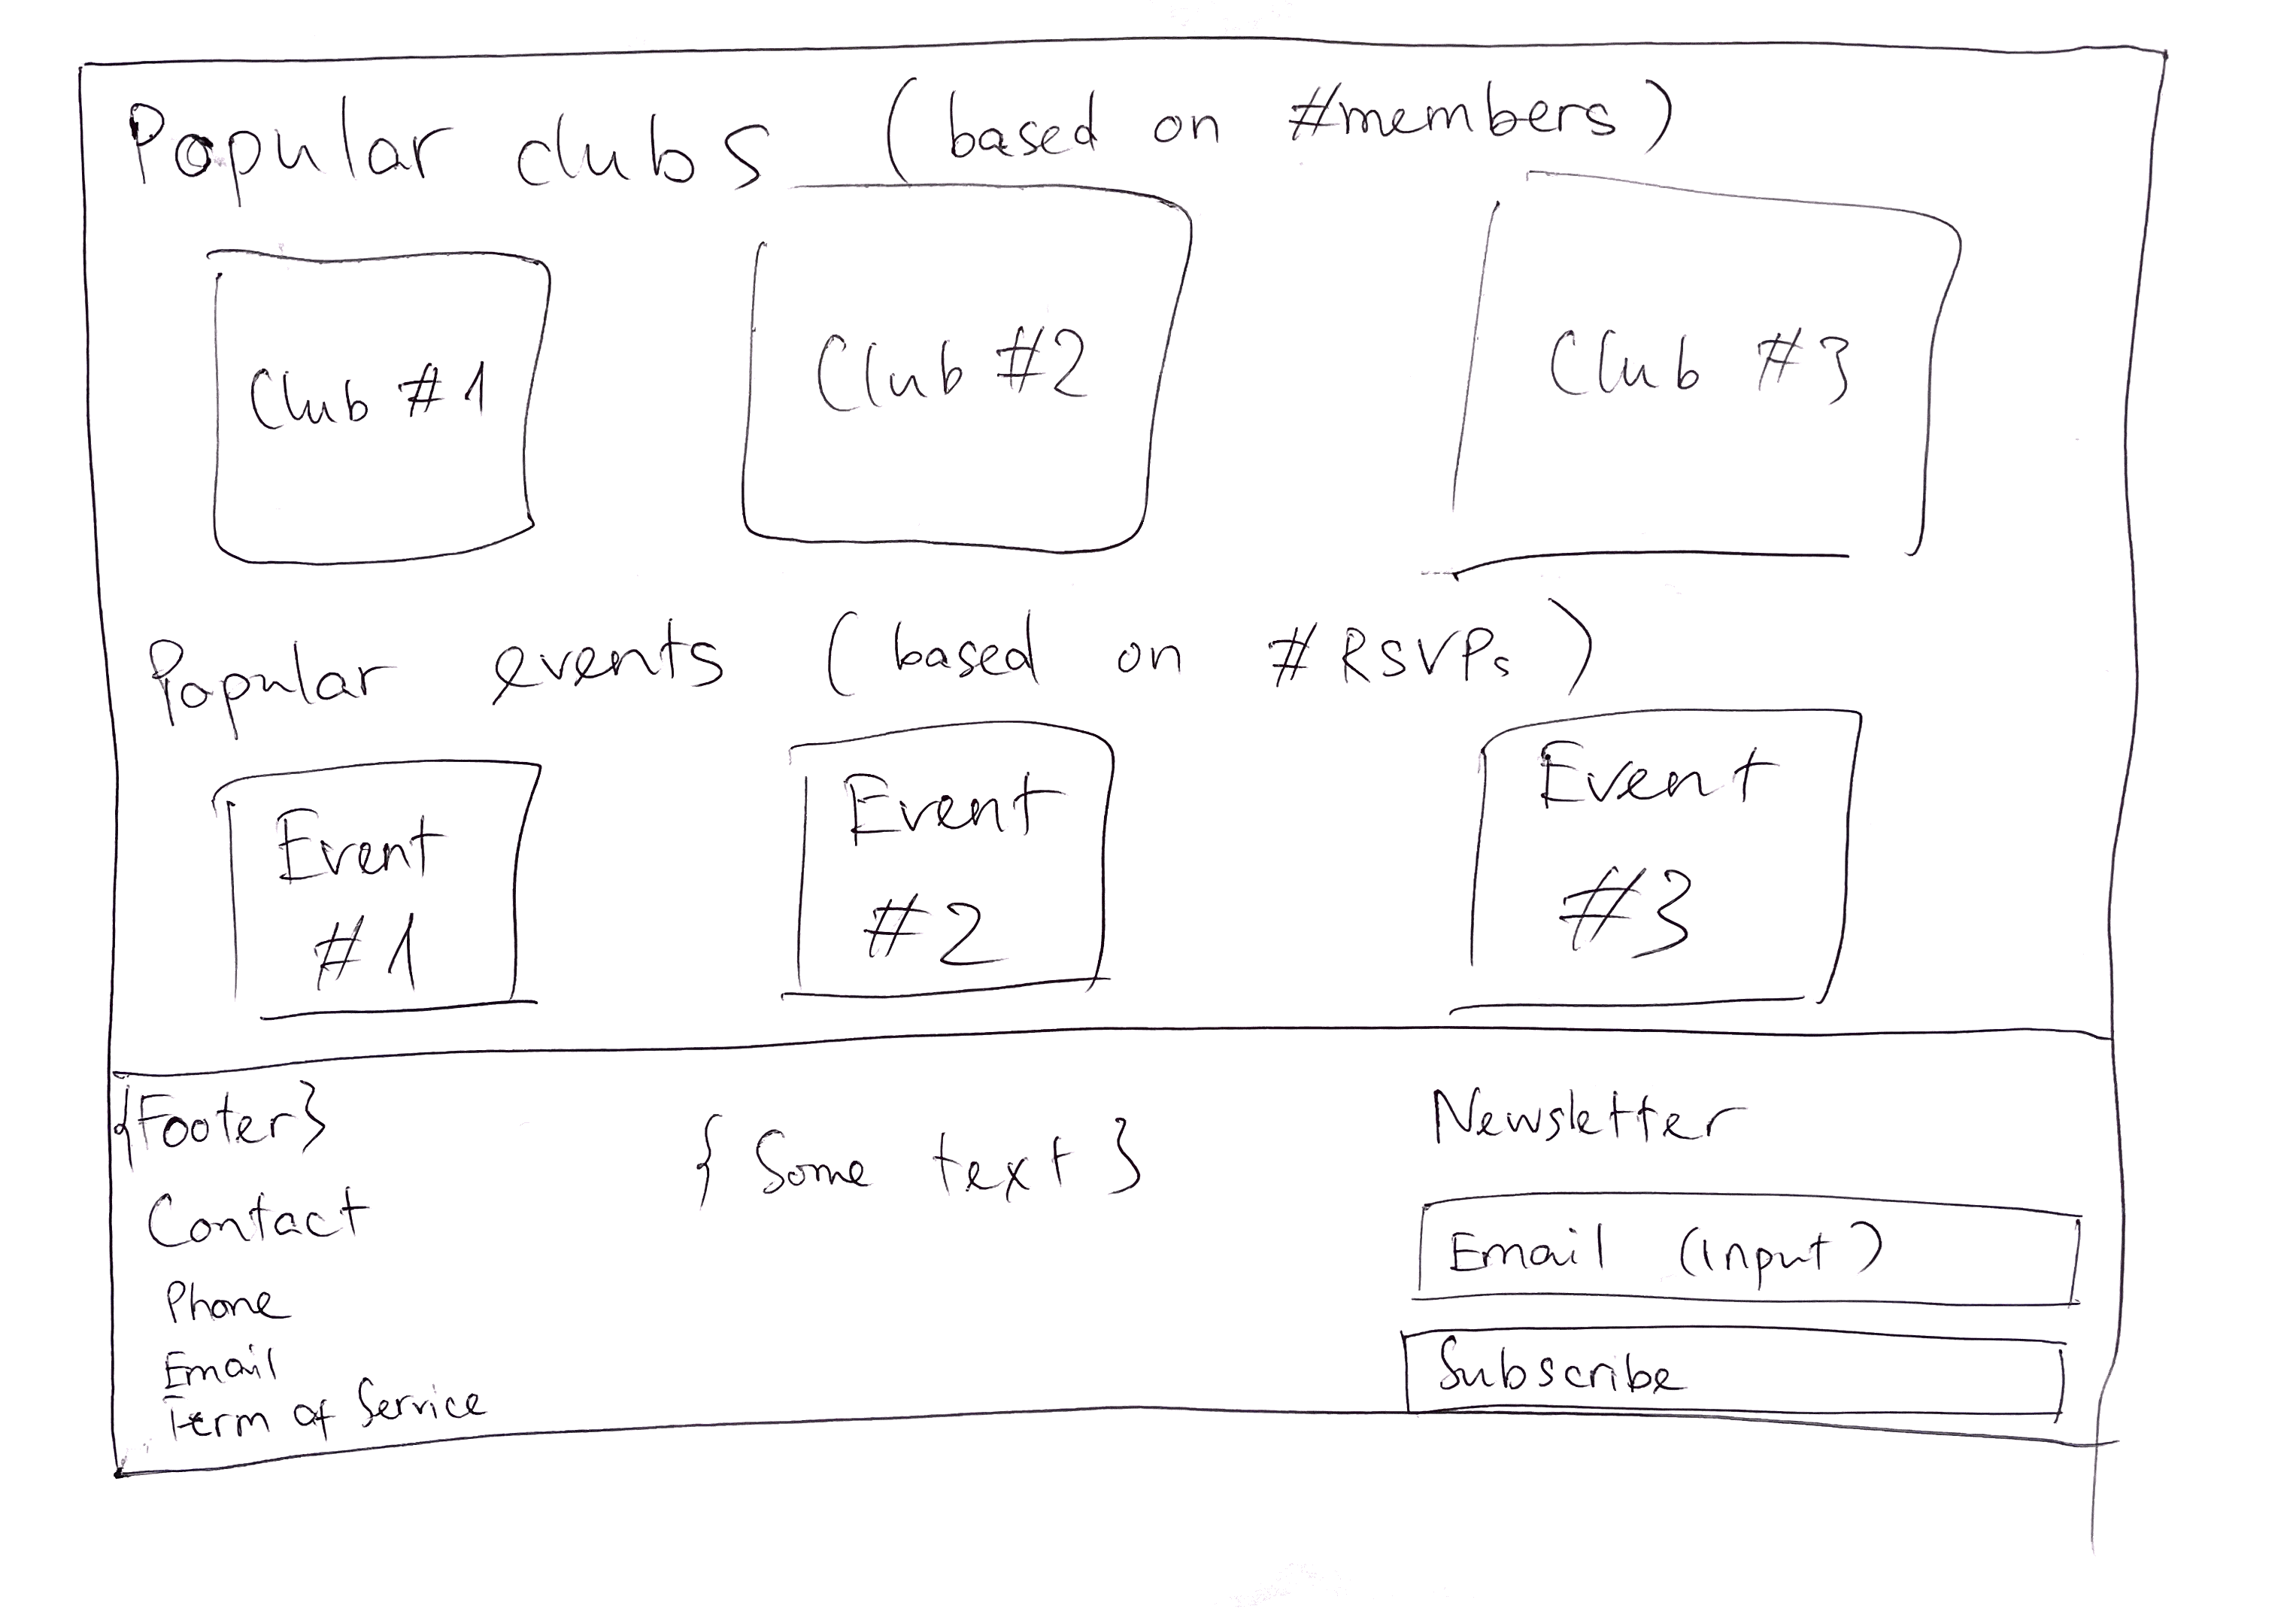 Popular clubs (based on #members)
Club #1
Club #2
Club #3
Popular events (based on #RSVPs)
Event
#1
Event
#2
Event
#3
{Footer}
Contact
Phone
Email
Term of Service
{ Some text }
Newsletter
Email (input)
Subscribe